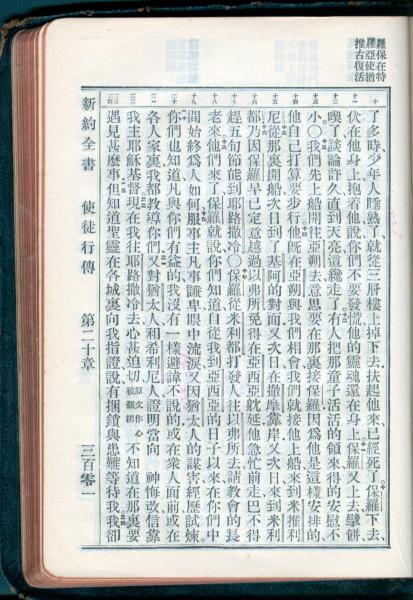 羅保在特
羅亞使猶
推古復活
了多時少年人睡熟了就從三層樓上掉下去扶起他來已經死了保羅下去、
伏在他身上抱着他說你們不要發慌他的靈魂還在身上保羅又上去擘餅
喫了談論許久直到天亮這纔走了有人把那童子活活的領來得的安慰不
小○我們先上船開往亞朔去意思要在那裏接保羅因爲他是這樣安排的
他自己打算要步行他旣在亞朔與我們相會我們就接他上船來到米推利
尼從那裏開船次日到了基阿的對面又次日在撒摩靠岸又次日來到米利
都乃因保羅早已定意越過以弗所免得在亞西亞躭延他急忙前走巴不得
趕五旬節能到耶路撒冷○保羅從米利都打發人往以弗所去請教會的長
老來他們來了保羅就說你們知道自從我到亞西亞的日子以來在你們中
間始終爲人如何服事主凡事謙卑眼中流淚又因猶太人的謀害經歷試煉
你們也知道凡與你們有益的我沒有一樣避諱不說的或在衆人面前或在
各人家裏我都教導你們又對猶太人和希利尼人證明當向　神悔改信靠
我主耶穌基督現在我往耶路撒冷去心甚迫切原文作心被捆綁不知道在那裏要
遇見甚麼事但知道聖靈在各城裏向我指證說有捆鎖與患難等待我我卻
新約全書　使徒行傳　第二十章　三百零一